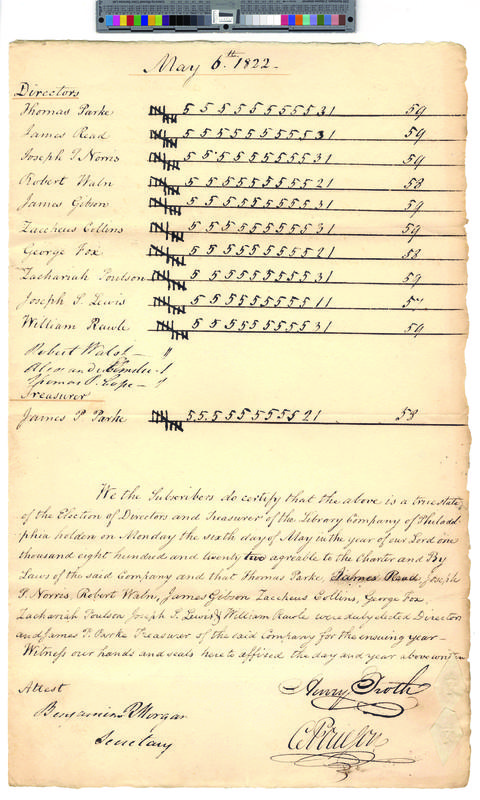 May 6th 1822-
Directors
Thomas Parke 5 5 5 5 5 5 5 5 5 3 1 59
James Read 5 5 5 5 5 5 5 5 5 3 1 59
Joseph P. Norris 5 5 5 5 5 5 5 5 5 3 1 59
Robert Waln 5 5 5 5 5 5 5 5 5 2 1 58
James Gibson 5 5 5 5 5 5 5 5 5 3 1 59
Zaccheus Collins 5 5 5 5 5 5 5 5 5 3 1 59
George Fox 5 5 5 5 5 5 5 5 5 2 1 58
Zachariah Poulson 5 5 5 5 5 5 5 5 5 3 1 59
Joseph S. Lewis 5 5 5 5 5 5 5 5 5 1 1 57
William Rawle 5 5 5 5 5 5 5 5 5 3 1 59
Robert Walsh - 11
Thomas P. Cope - 1
Treasurer
James P. Parke 5 5 5 5 5 5 5 5 5 2 1 58
We the Subscribers do certify that the above is a true state
of the Election of Directors and Treasurer of the Library Company of Philadel
phia holden on Monday the sixth day of May in the year of our Lord one
thousand eight hundred and twenty two agreable to the Charter and By
Laws of the said Company and that Thomas Parke, James Read, Joseph
P. Norris, Robert Waln, James Gibson Zaccheus Collins, George Fox,
Zachariah Poulson Joseph S. Lewis & William Rawle were duly elected Directors
and James P. Parke Treasurer of the said Company for the ensuing year-
Witness our hands and seals hereto affixed the day and year above written
Attest Henry Troth
Benjamin R Morgan
Secretary